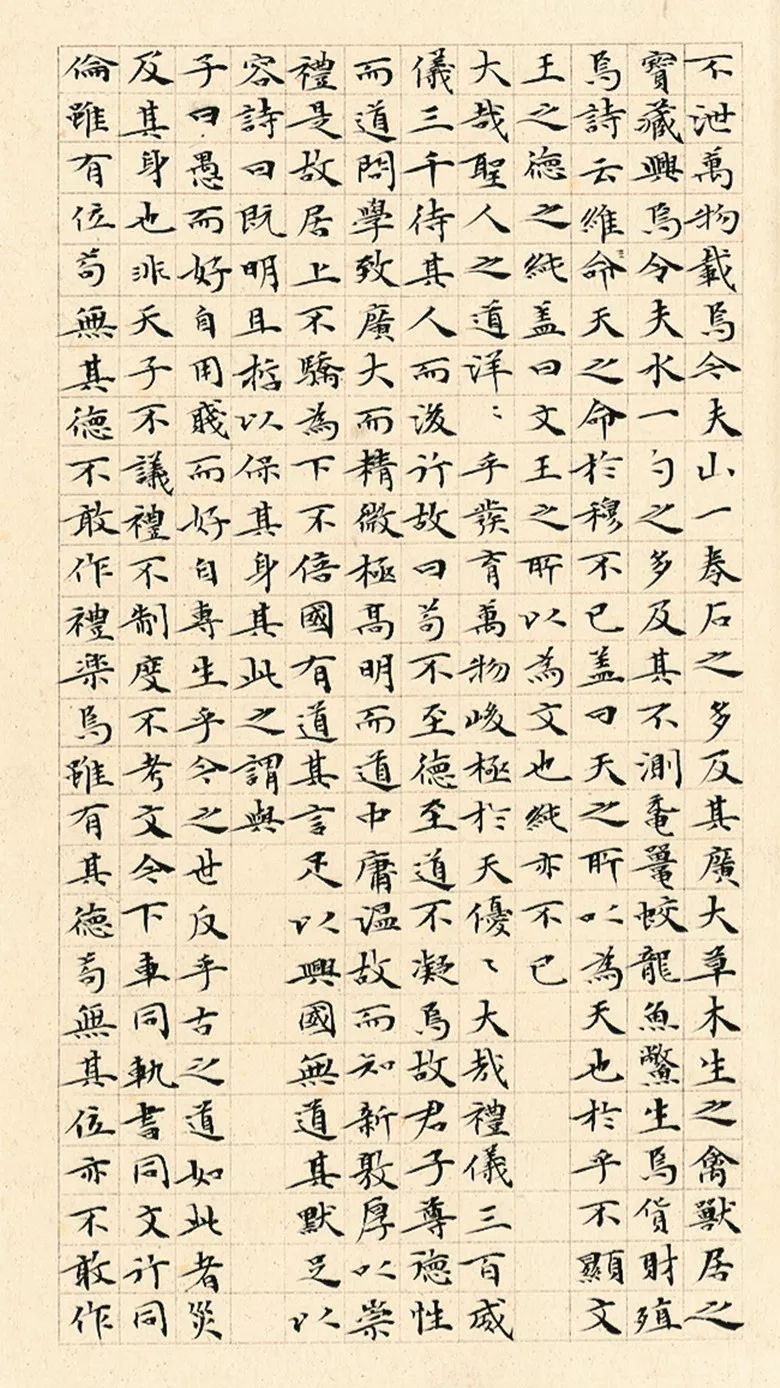 不泄萬物載焉今夫山一拳石之多及其廣大草木生之禽獸居之
寶藏興焉今夫水一勺之多及其不測黿鼉蛟龍魚鱉生焉貨財殖
焉詩云維命天之命於穆不已盖曰天之所以為天也於乎不顯文
王之德之純盖曰文王之所以為文也純亦不已
大哉聖人之道洋〻乎發育萬物峻極於天優〻大哉禮儀三百威
儀三千待其人而後行故曰苟不至德至道不凝焉故君子尊德性
而道問學致廣大而精微極高明而道中庸温故而知新敦厚以崇
禮是故居上不驕為下不倍國有道其言足以興國無道其默足以
容詩曰既明且哲以保其身其此之謂與
子曰愚而好自用賤而好自專生乎今之世反乎古之道如此者災
及其身也非天子不議禮不制度不考文今下車同軌書同文行同
倫雖有位苟無其德不敢作禮樂焉雖有其德苟無其位亦不敢作